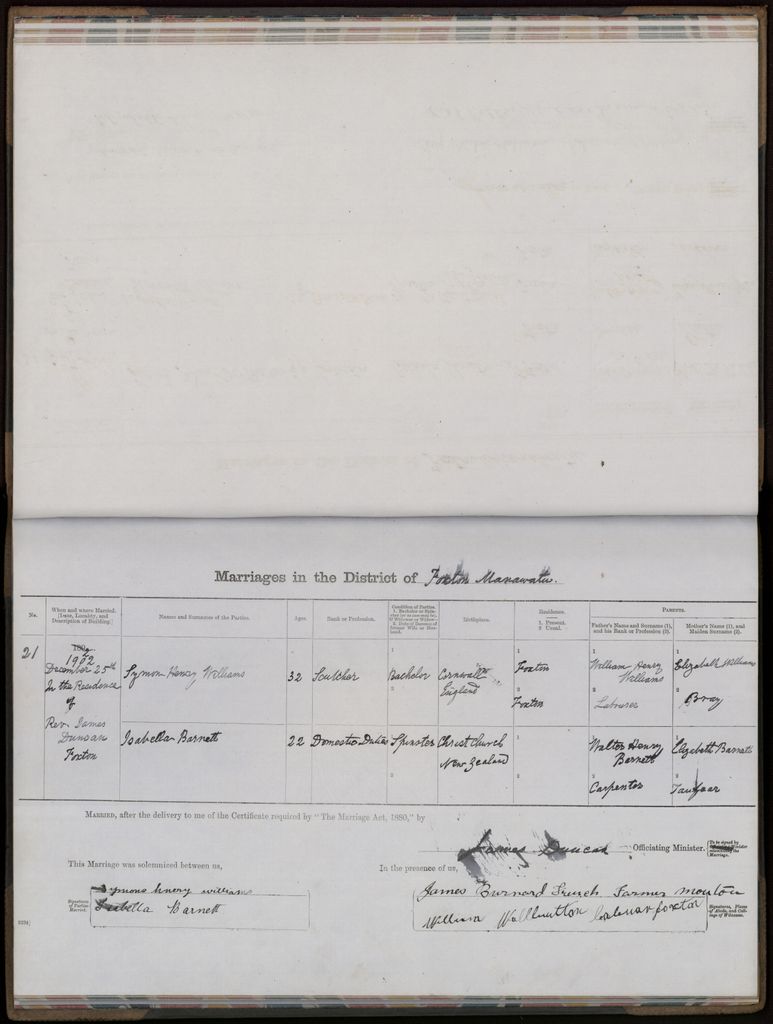 Marriages in the District of Foxton Manawatu.
No.
When and where Married.
[Date, Locality, and
Description of Building.]
Names and Surnames of the Parties.
Ages.
Rank or Profession.
Condition of Parties.
Birthplace.
Residence.
1. Present.
2. Usual.
PARENTS.
Father's Name and Surname (1),
and his Rank or Profession (2).
Mother's Name (1), and
Maiden Surname (2).
21
1902
December 25th
In the Residence
of
Rev. James
Duncan
Foxton
Symon Henry Williams
32
Scutcher
1
Bachelor
2
Cornwall
England
1
Foxton
2
Foxton
1
William Henry
Williams
2
Labourer
1
Elizabeth Williams
2
Bray
Isabella Barnett
22
Domestic Duties
1
Spinster
2
Christchurch
New Zealand
1
2
1
Walter Henry
Barnett
2
Carpenter
1
Elizabeth Barnett
2
MARRIED, after the delivery to me of the Certificate required by "The Marriage Act, 1880," by
James Duncan Officiating Minister.
[To be signed by
Marriage.
This Marriage was solemnized between us,
Symons henery williams
Isabella Barnett
Signatures
of Parties
Married.
In the presence of us,
James Burnard French Farmer Moutoa
William
Signatures, Places
of Abode, and Call-
ings of Witnesses.